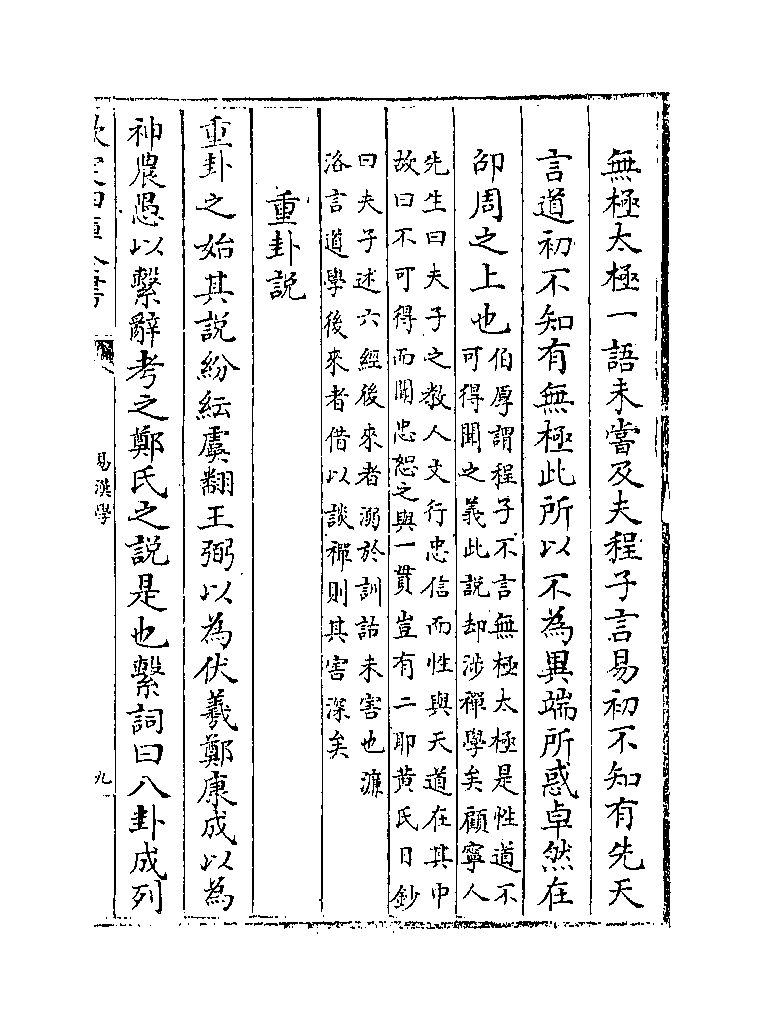 無極太極一語未嘗及夫程子言易初不知有先天
言道初不知有無極此所以不為異端所惑卓然在
邵周之上也
伯厚謂程子不言無極太極是性道不
可得聞之義此説却涉禪學矣顧寧人
先生曰夫子之教人文行忠信而性與天道在其中
故曰不可得而聞忠恕之與一貫豈有二耶黄氏日鈔
曰夫子述六經後來者溺於訓詁未害也濂
洛言道學後來者借以談禪則其害深矣
重卦説
重卦之始其説紛紜虞翻王弼以為伏羲鄭康成以為
神農愚以繫辭考之鄭氏之説是也繫詞曰八卦成列
欽定四庫全書
易漢學
九